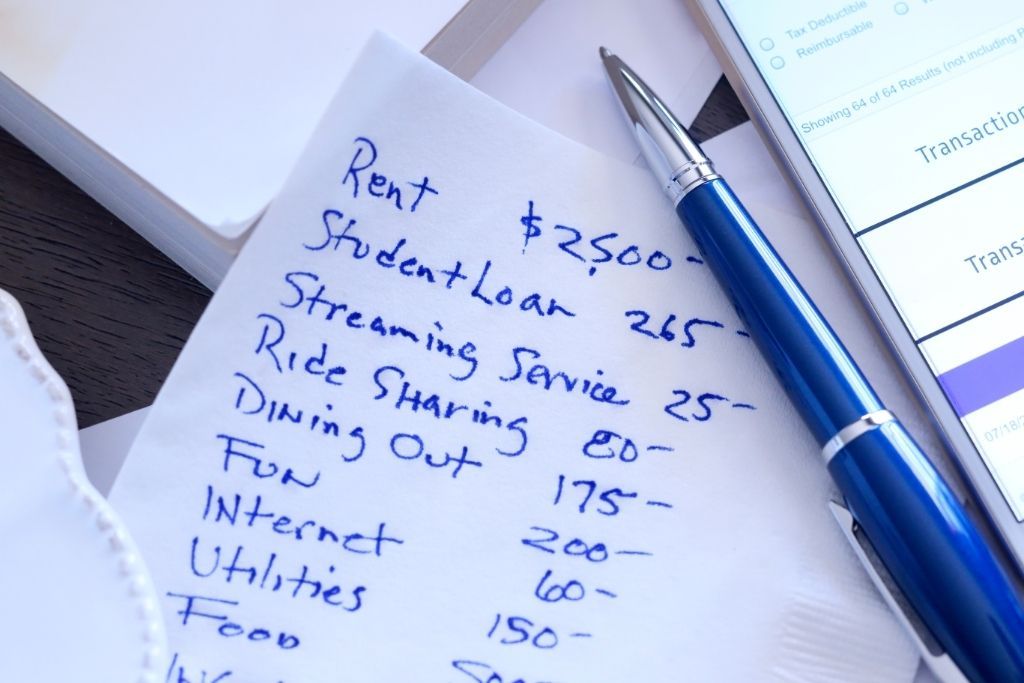 Rent $2,500-
Student Loan 265-
Streaming Service 25-
Ride Sharing 80-
Dining Out 175-
Fun 200-
Internet 60-
Utilities 150-
Food
Tax Deductible
Reimbursable
Showing 64 of 64 Results (not including
Transaction
07/18/